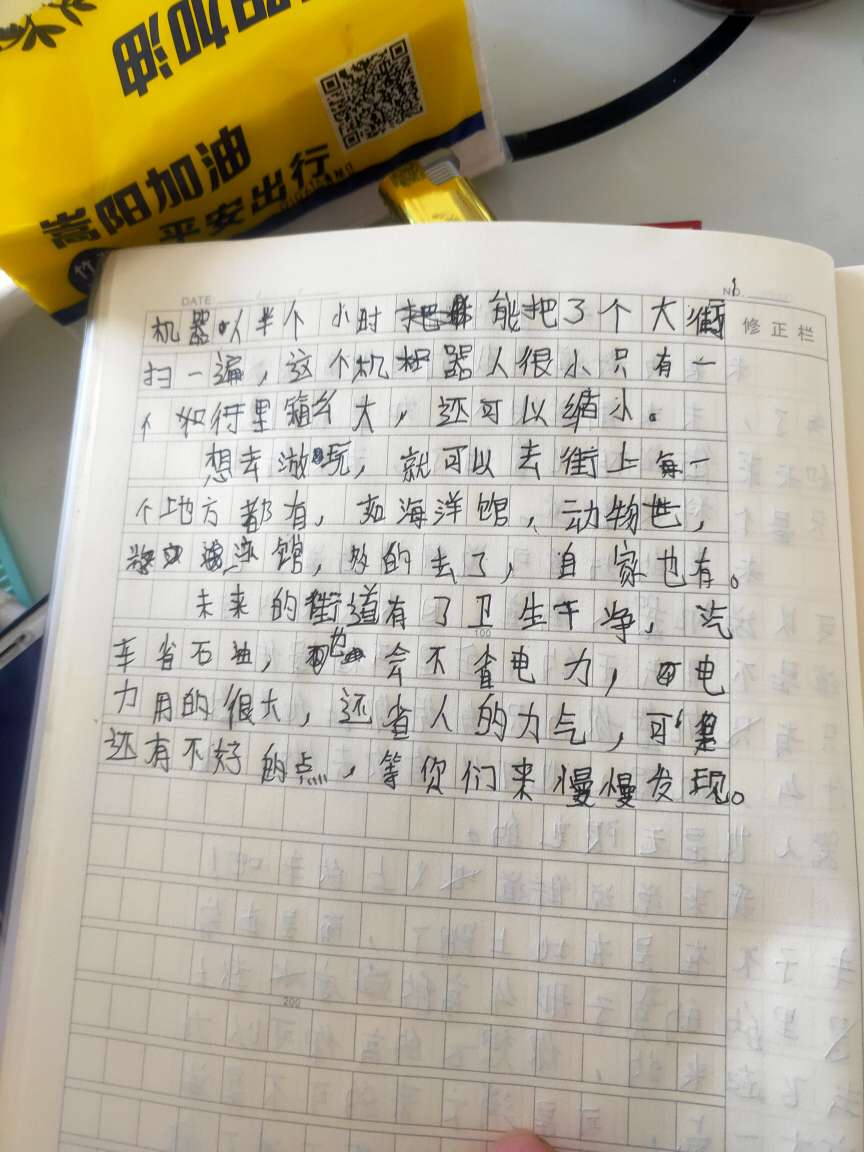 阳加油
嵩阳加油
平安出行
竹
DATE:
No.
修正栏
机器以半个小时把能把了个大街
扫一遍，这个机器人很小只有一
个如行里箱么大，还可以缩小。
想去游玩，就可以去街上每一
个地方都有，如海洋馆，动物世，
馆，的去了，自家也有。
未来的街道有了卫生干净，汽
车省石油，也会不省电力，电
力用的很大，还省人的力气，可
还有不好的点，等你们来慢慢发现。
100
200